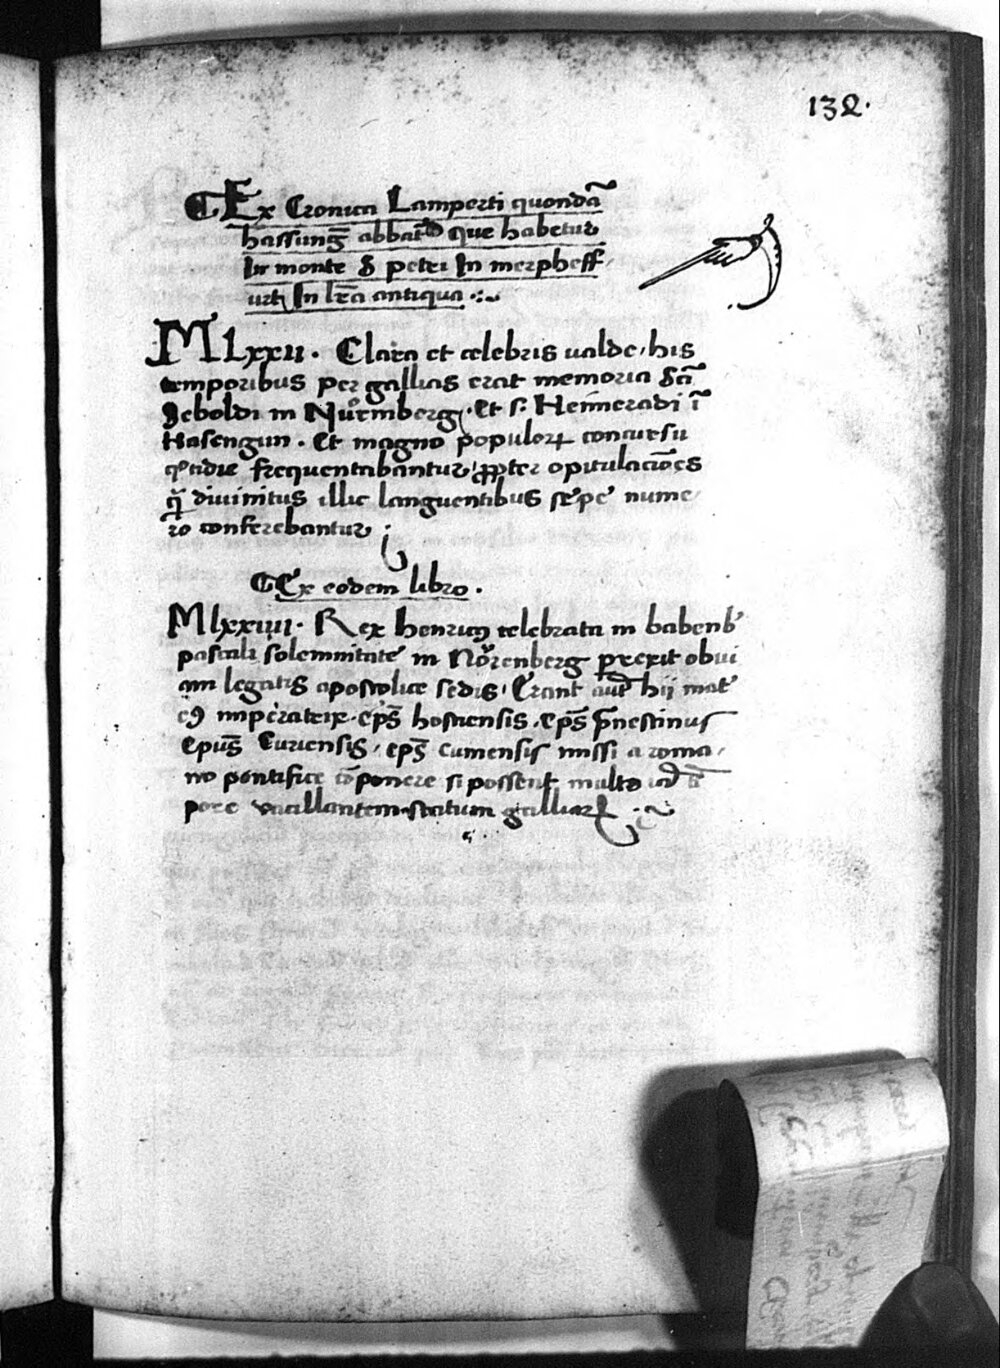 132.
Ex Cronica Lamperti quondā
hassunḡ abbatis que habetur
In monte S petri In merpheſſ
urt In lr̄a antiqua
Mlxxii. Clara et celebris ualde his
temporibus per gallias erat memoria Sc̄i
Seboldi in Nuͦrmberg. Et s. Heimeradi ī
Hasengun. Et magno populoꝝ concursu
qͦtidie frequentabantur ꝓpter opitulac̄oēs
q̄ diuinitus illic languentibus sepe nume
ro conferebantur
Ex eodem libro.
Mlxxiiii. Rex henricꝰ celebrata in babenb̓
pascali solemnitate in Norenberg perexit obui
am legatis apostolice sedis. Erant aut̄ hij mat̓
eꝰ imperatrix. ep̄s hostiensis. ep̄s p̄nestinus
Epus̄ Curiensis, ep̄s cumensis missi a roma
no pontifice cōponere si possent multo iā tē
pore vacillantem statum galliaꝝ